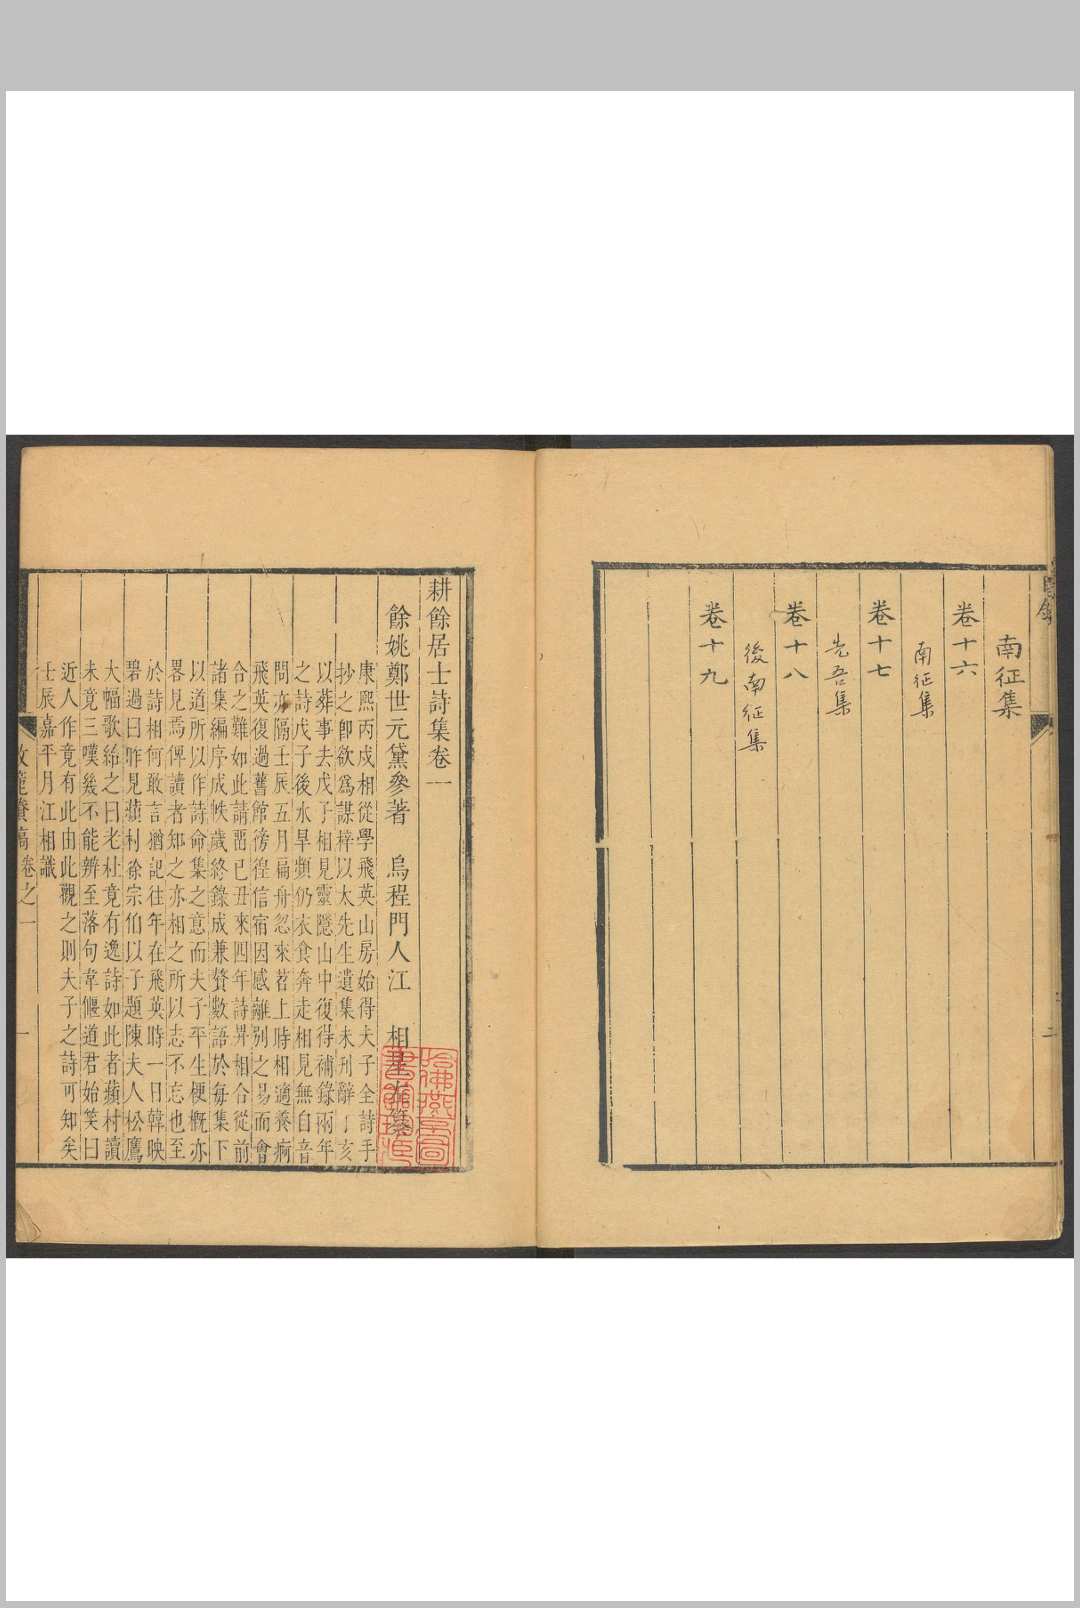 南征集
卷十六
南征集
卷十七
先吾集
卷十八
後南征集
卷十九
耕餘居士詩集卷一
餘姚鄭世元黛參著　烏程門人江　相
康熙丙戌相從學飛英山房始得夫子全詩手
抄之卽欲爲謀梓以太先生遺集未刋辭丁亥
以葬事去戊子相見靈隱山中復得補錄兩年
之詩戊子後水旱頻仍衣食奔走相見無自音
問亦隔壬辰五月扁舟忽來苕上時相適養痾
飛英復過舊館徬徨信宿因感離別之易而會
合之難如此請畱已丑來四年詩畀相合從前
諸集編序成帙歲終錄成兼贅數語於每集下
以道所以作詩命集之意而夫子平生梗概亦
畧見焉俾讀者知之亦相之所以志不忘也至
於詩相何敢言猶記往年在飛英時一日韓映
碧過曰昨見蘋村徐宗伯以子題陳夫人松鷹
大幅歌紿之曰老杜竟有逸詩如此者蘋村讀
未竟三嘆幾不能辨至落句韋偃道君始笑曰
近人作竟有此由此觀之則夫子之詩可知矣
壬辰嘉平月江相識
卷之一
一
哈佛燕京圖
書館珍藏